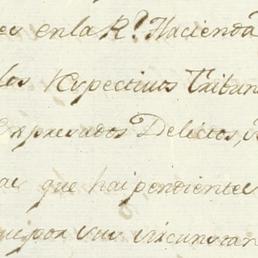 en la R.l Hacienda
los respectivos Tribun
expresados Delictos,
que hai pendientes
por sus circunstan